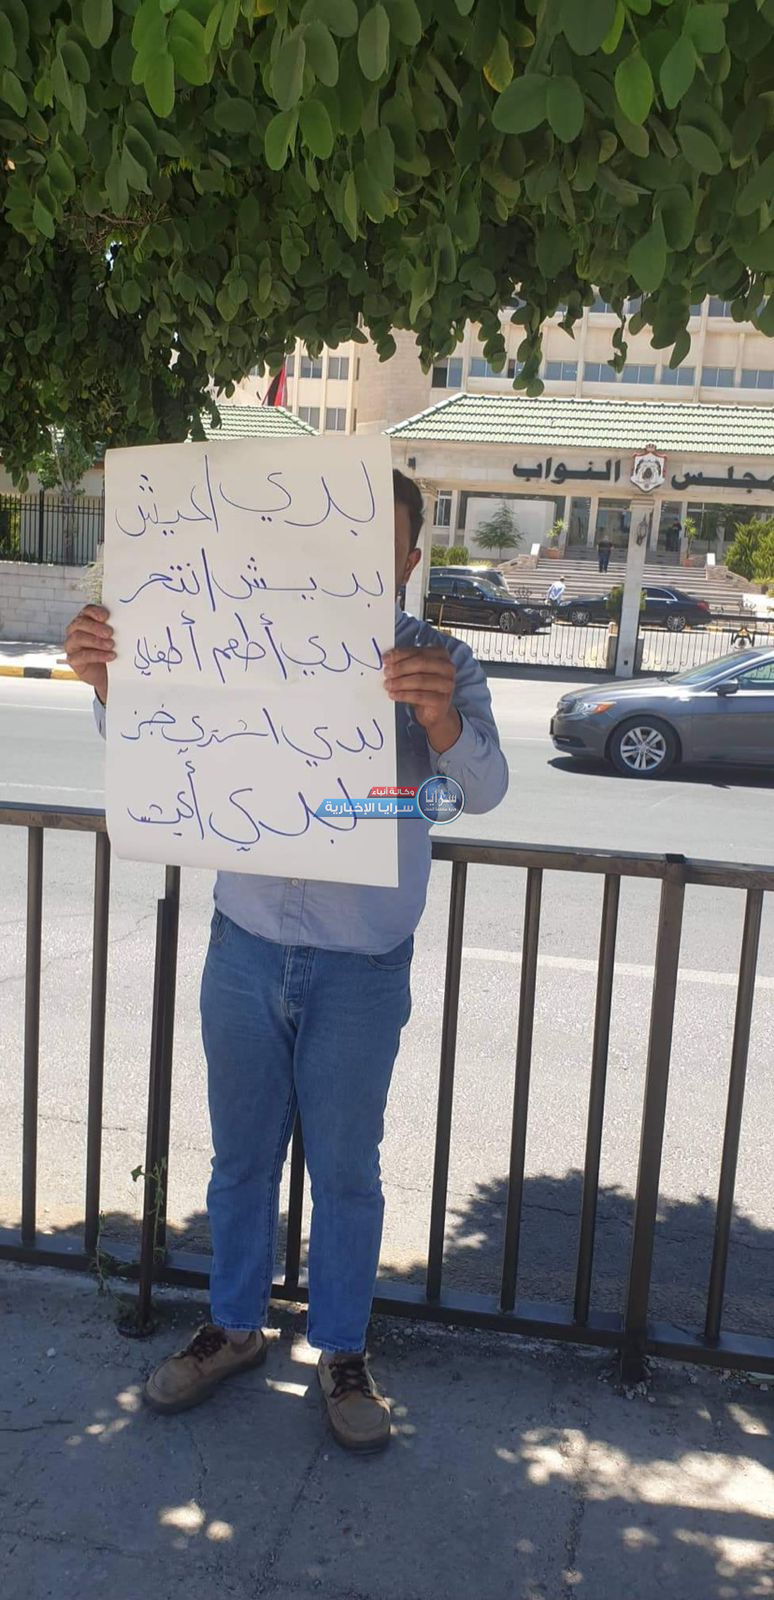 مجلس النواب
بدي اعيش
بديش انتحر
بدي أطعم أطفالي
بدي اشتري خبز
بدي أعيش
وكالة أنباء
سرايا الإخبارية
سرايا